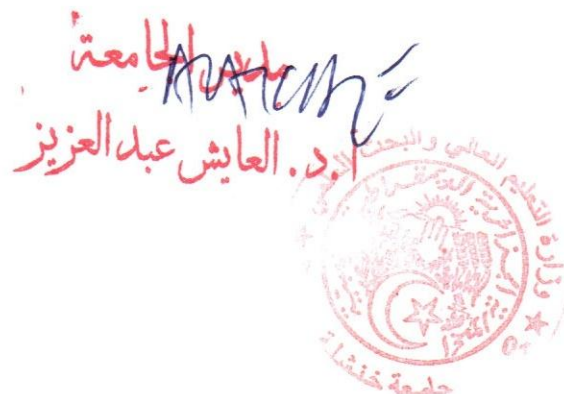 مدير الجامعة
أ.د. العايش عبد العزيز
وزارة التعليم العالي والبحث العلمي
الجمهورية الجزائرية الديمقراطية الشعبية
جامعة خنشلة